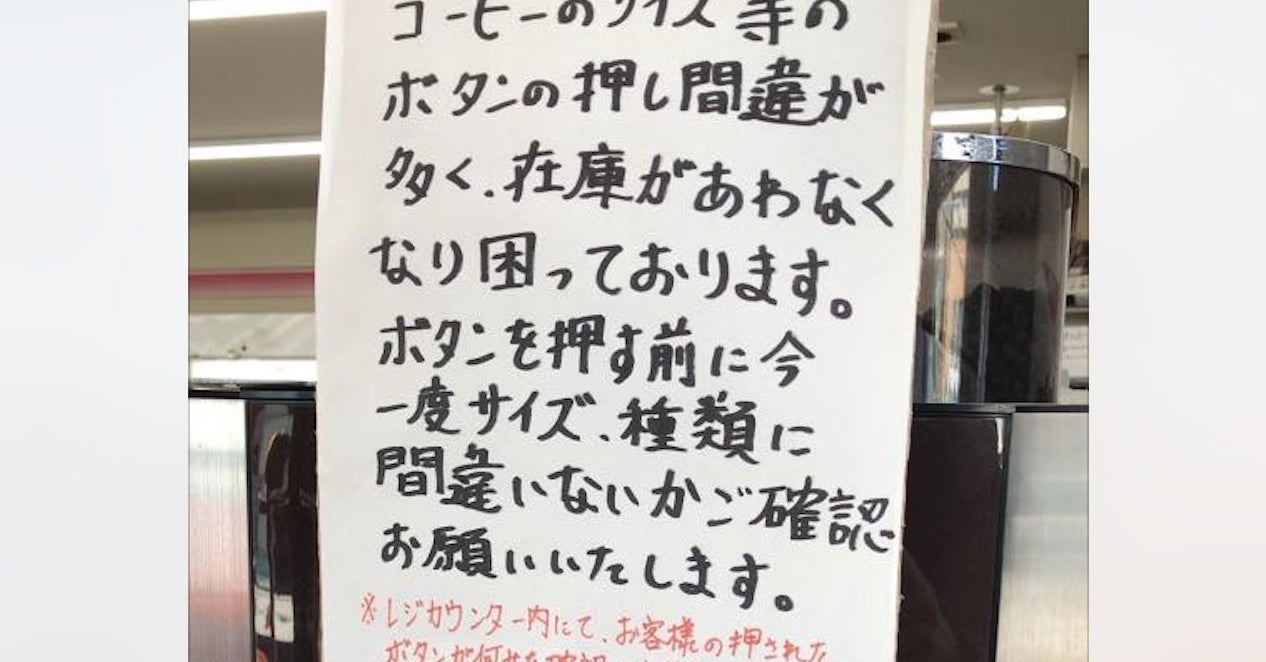 コーヒーのサイズ等の
ボタンの押し間違が
多く、在庫があわなく
なり困っております。
ボタンを押す前に今
一度サイズ、種類に
間違いないかご確認
お願いいたします。
※レジカウンター内にて、お客様の押された
ボタンが何